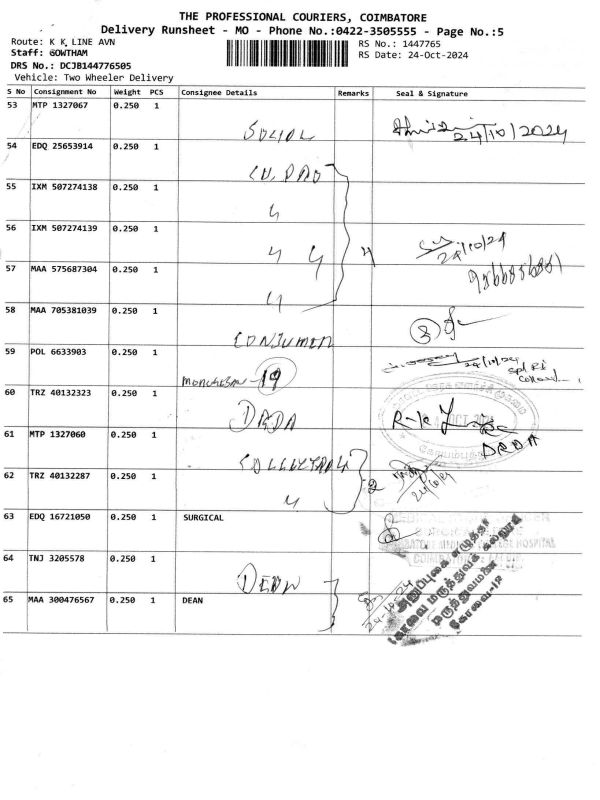 THE PROFESSIONAL COURIERS, COIMBATORE
Delivery Runsheet - MO - Phone No.:0422-3505555 - Page No.:5
Route: K K LINE AVN
RS No.: 1447765
Staff: GOWTHAM
RS Date: 24-Oct-2024
DRS No.: DCJB144776505
Vehicle: Two Wheeler Delivery
S No Consignment No Weight PCS Consignee Details Remarks Seal & Signature
53 MTP 1327067 0.250 1
SOCIAL 24/10/2024
54 EDQ 25653914 0.250 1
55 IXM 507274138 0.250 1
56 IXM 507274139 0.250 1
4 24/10/24
57 MAA 575687304 0.250 1
58 MAA 705381039 0.250 1
CONSUMER 3
59 POL 6633903 0.250 1
19 24/10/24
60 TRZ 40132323 0.250 1
DRDA
DRDA
61 MTP 1327060 0.250 1
62 TRZ 40132287 0.250 1
2
63 EDQ 16721050 0.250 1 SURGICAL
64 TNJ 3205578 0.250 1
DEAN
65 MAA 300476567 0.250 1 DEAN
24-10-24
அனுப்புகை எழுத்தர்
கோவை மருத்துவக் கல்லூரி
மருத்துவமனை
கோவை-18